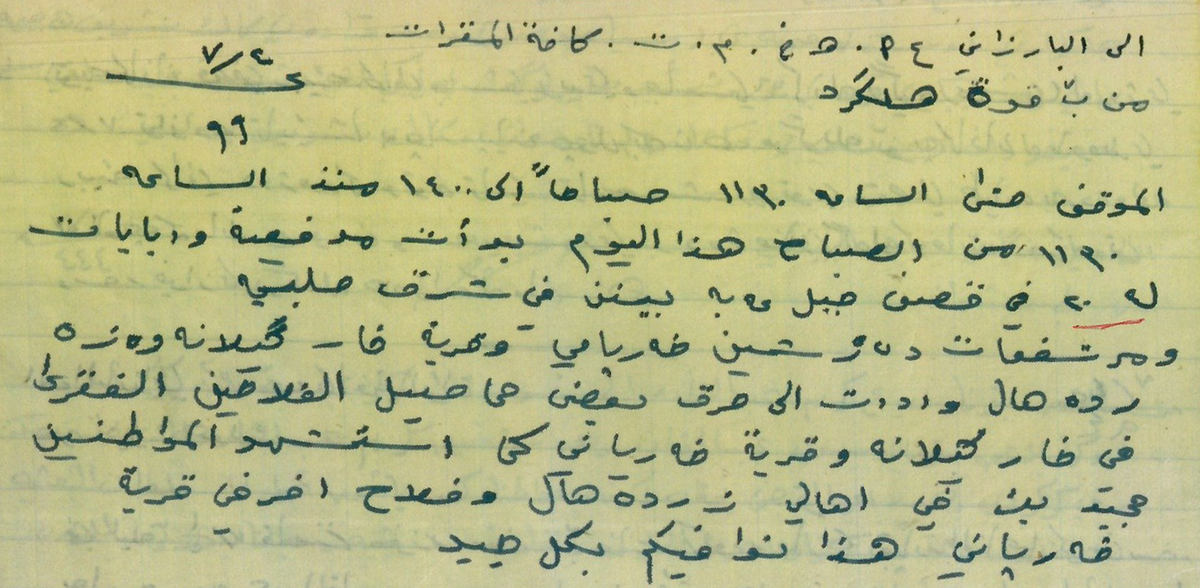 الى البارزاني ع ٩. هـ ع. م. ت. كافة المقرات
٧/٤
من ب قوة هلكرد
٩٩
الموقف حتى الساعه ١١٣٠ صباحاً الى ١٤٠٠ منذ الساعه
١١٣٠ من الصباح هذا اليوم بدأت مدفعية ودبابات
له ٢٠ في قصف جبل في شرق حلبجه
ومرتفعات خه رپاني وقرية خار گيلانه وزه
رده هال وادت الى حرق بعض محاصيل الفلاحين الفقرى
في خار گيلانه وقرية خه رپاني كما استشهد المواطنين
مجيد من اهالي زرده هال وفلاح اخر في قرية
خه رپاني هذا نوافيكم بكل جيد